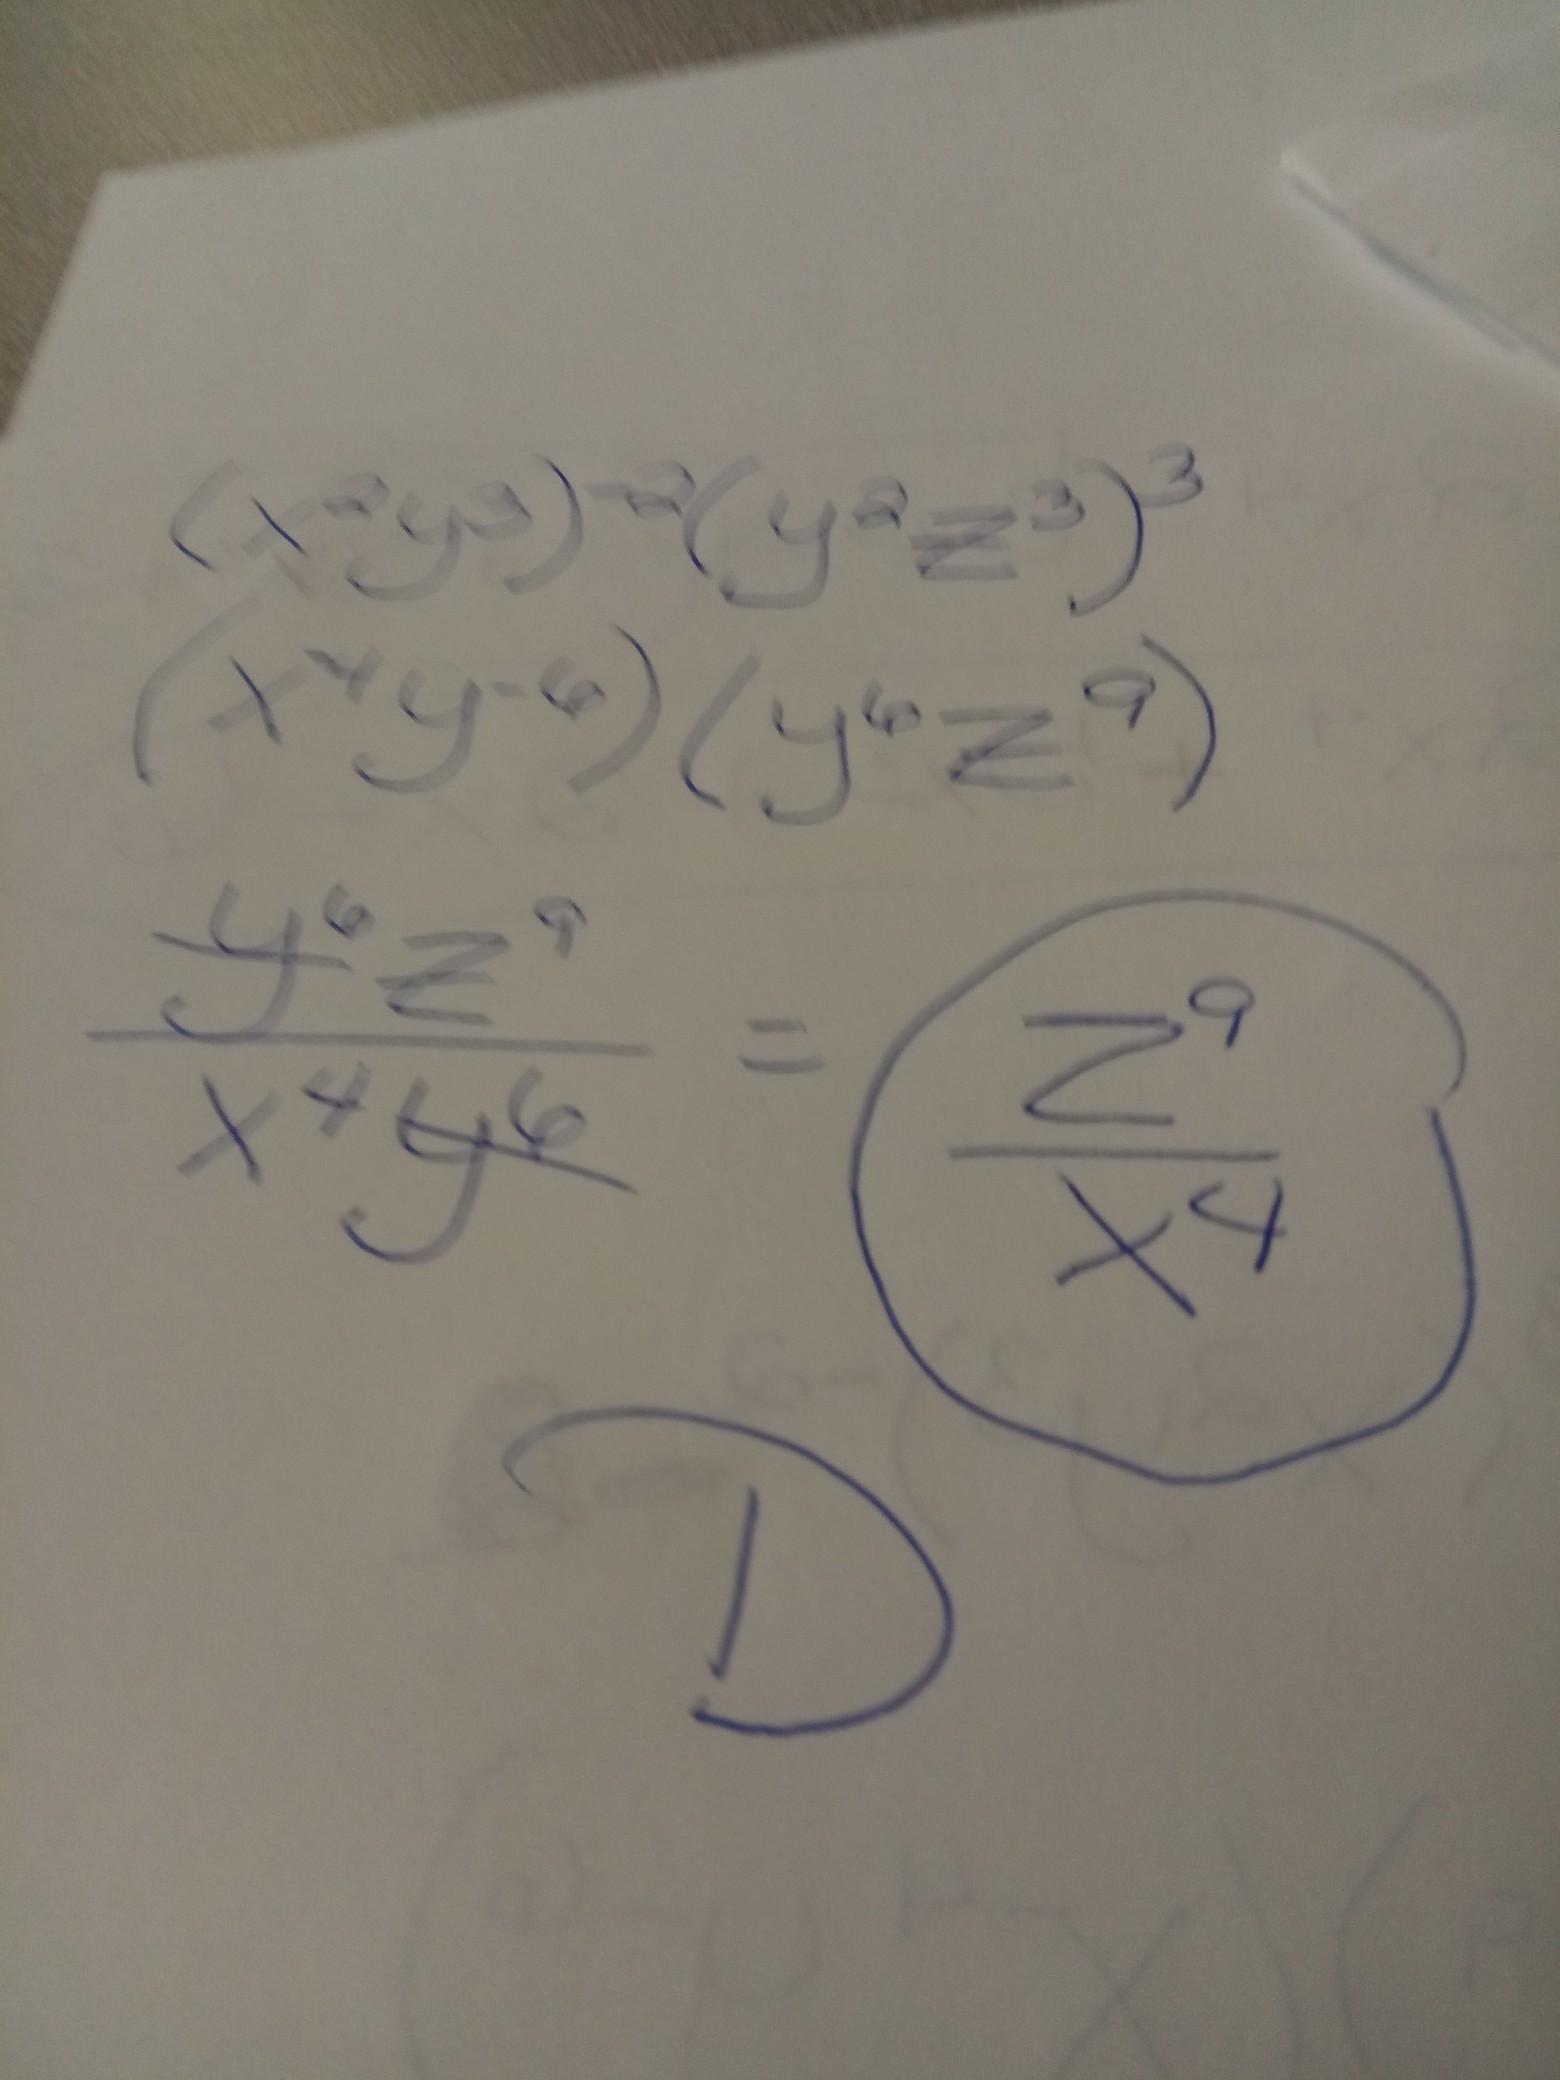 (x²y³)⁻²(y²z³)³
(x⁴y⁻⁶)(y⁶z⁹)
y⁶z⁹/x⁴y⁶ = z⁹/x⁴
D